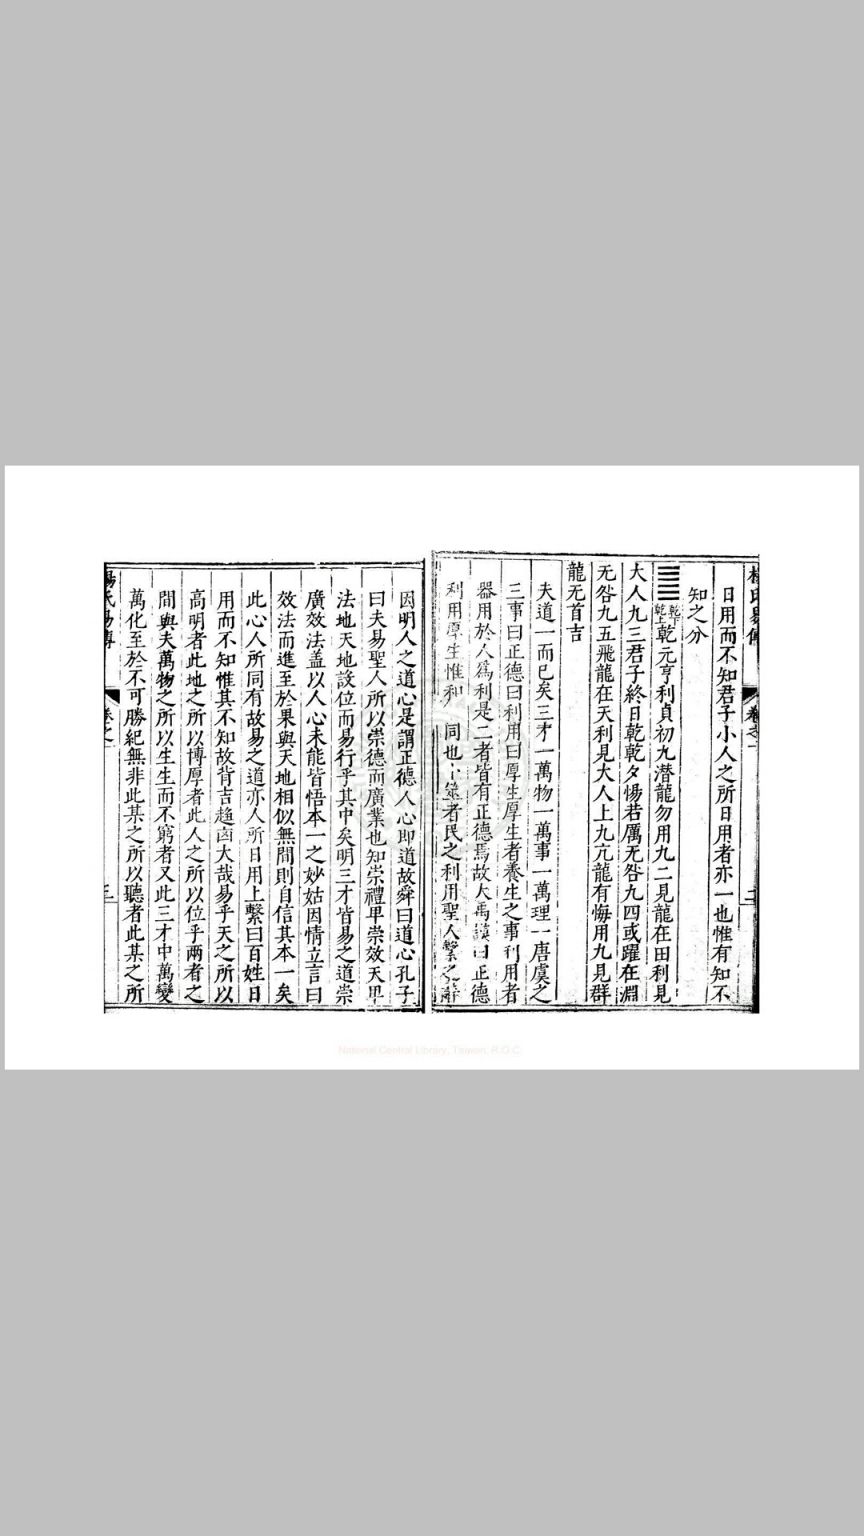 日用而不知君子小人之所日用者亦一也惟有知不
知之分
乾下乾上乾元亨利貞初九潛龍勿用九二見龍在田利見
大人九三君子終日乾乾夕惕若厲无咎九四或躍在淵
无咎九五飛龍在天利見大人上九亢龍有悔用九見群
龍无首吉
夫道一而已矣三才一萬物一萬事一萬理一唐虞之
三事曰正德曰利用曰厚生厚生者養生之事利用者
器用於人為利是二者皆有正德焉故大禹謨曰正德
利用厚生惟和 同也卜筮者民之利用聖人繫之辭
因明人之道心是謂正德人心即道故舜曰道心孔子
曰夫易聖人所以崇德而廣業也知崇禮卑崇效天卑
法地天地設位而易行乎其中矣明三才皆易之道崇
廣效法盖以人心未能皆悟本一之妙姑因情立言曰
效法而進至於果與天地相似無間則自信其本一矣
此心人所同有故易之道亦人所日用上繫曰百姓日
用而不知惟其不知故背吉趨凶大哉易乎天之所以
高明者此地之所以博厚者此人之所以位乎兩者之
間與夫萬物之所以生生而不窮者又此三才中萬變
萬化至於不可勝紀無非此某之所以聽者此某之所
楊氏易傳 卷之一 二
楊氏易傳 卷之一 三
National Central Library, Taiwan, R.O.C